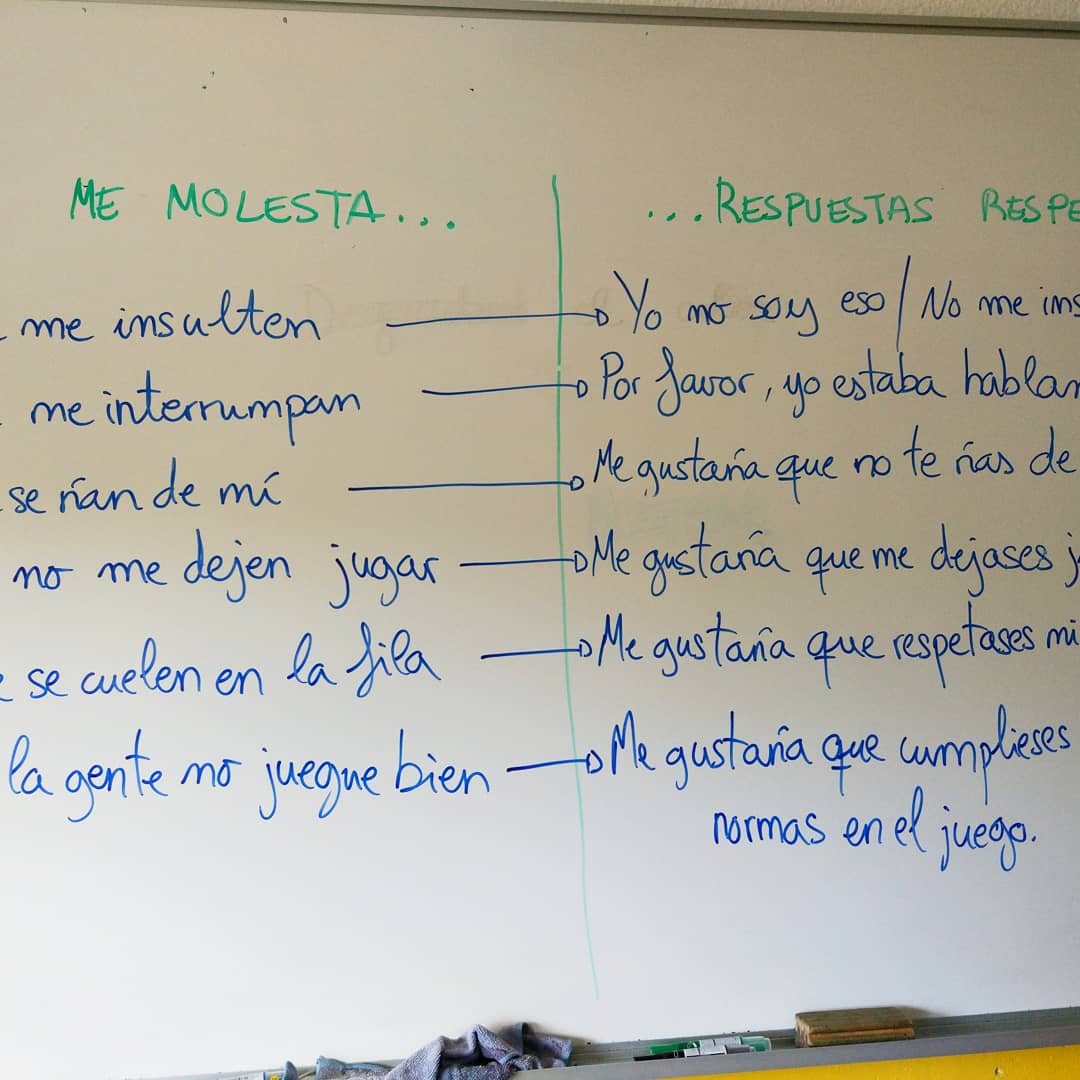 ME MOLESTA...
...RESPUESTAS RESPE
me insulten
Yo no soy eso / No me ins
me interrumpan
Por favor, yo estaba hablan
se rían de mí
Me gustaría que no te rías de
no me dejen jugar
Me gustaría que me dejases j
se cuelen en la fila
Me gustaría que respetases mi
la gente no juegue bien
Me gustaría que cumplieses
normas en el juego.